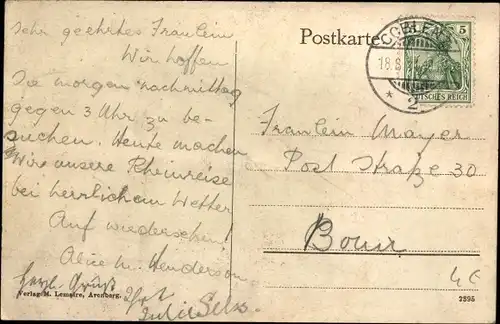 Sehr geehrtes Fräulein
Wir hoffen
Sie morgen nachmittag
gegen 3 Uhr zu be-
suchen. Heute machen
Wir unsere Rheinreise
bei herrlichem Wetter
Auf wiedersehen!
Alice M. Henderson
Herzl. Gruß
Julie Selz.
Verlag M. Lemaire, Arenberg.
Postkarte
COBLENZ
18.8
* 2
5
DEUTSCHES REICH
Fraulein Mayer
Post Straße 30
Bonn
4€
2395